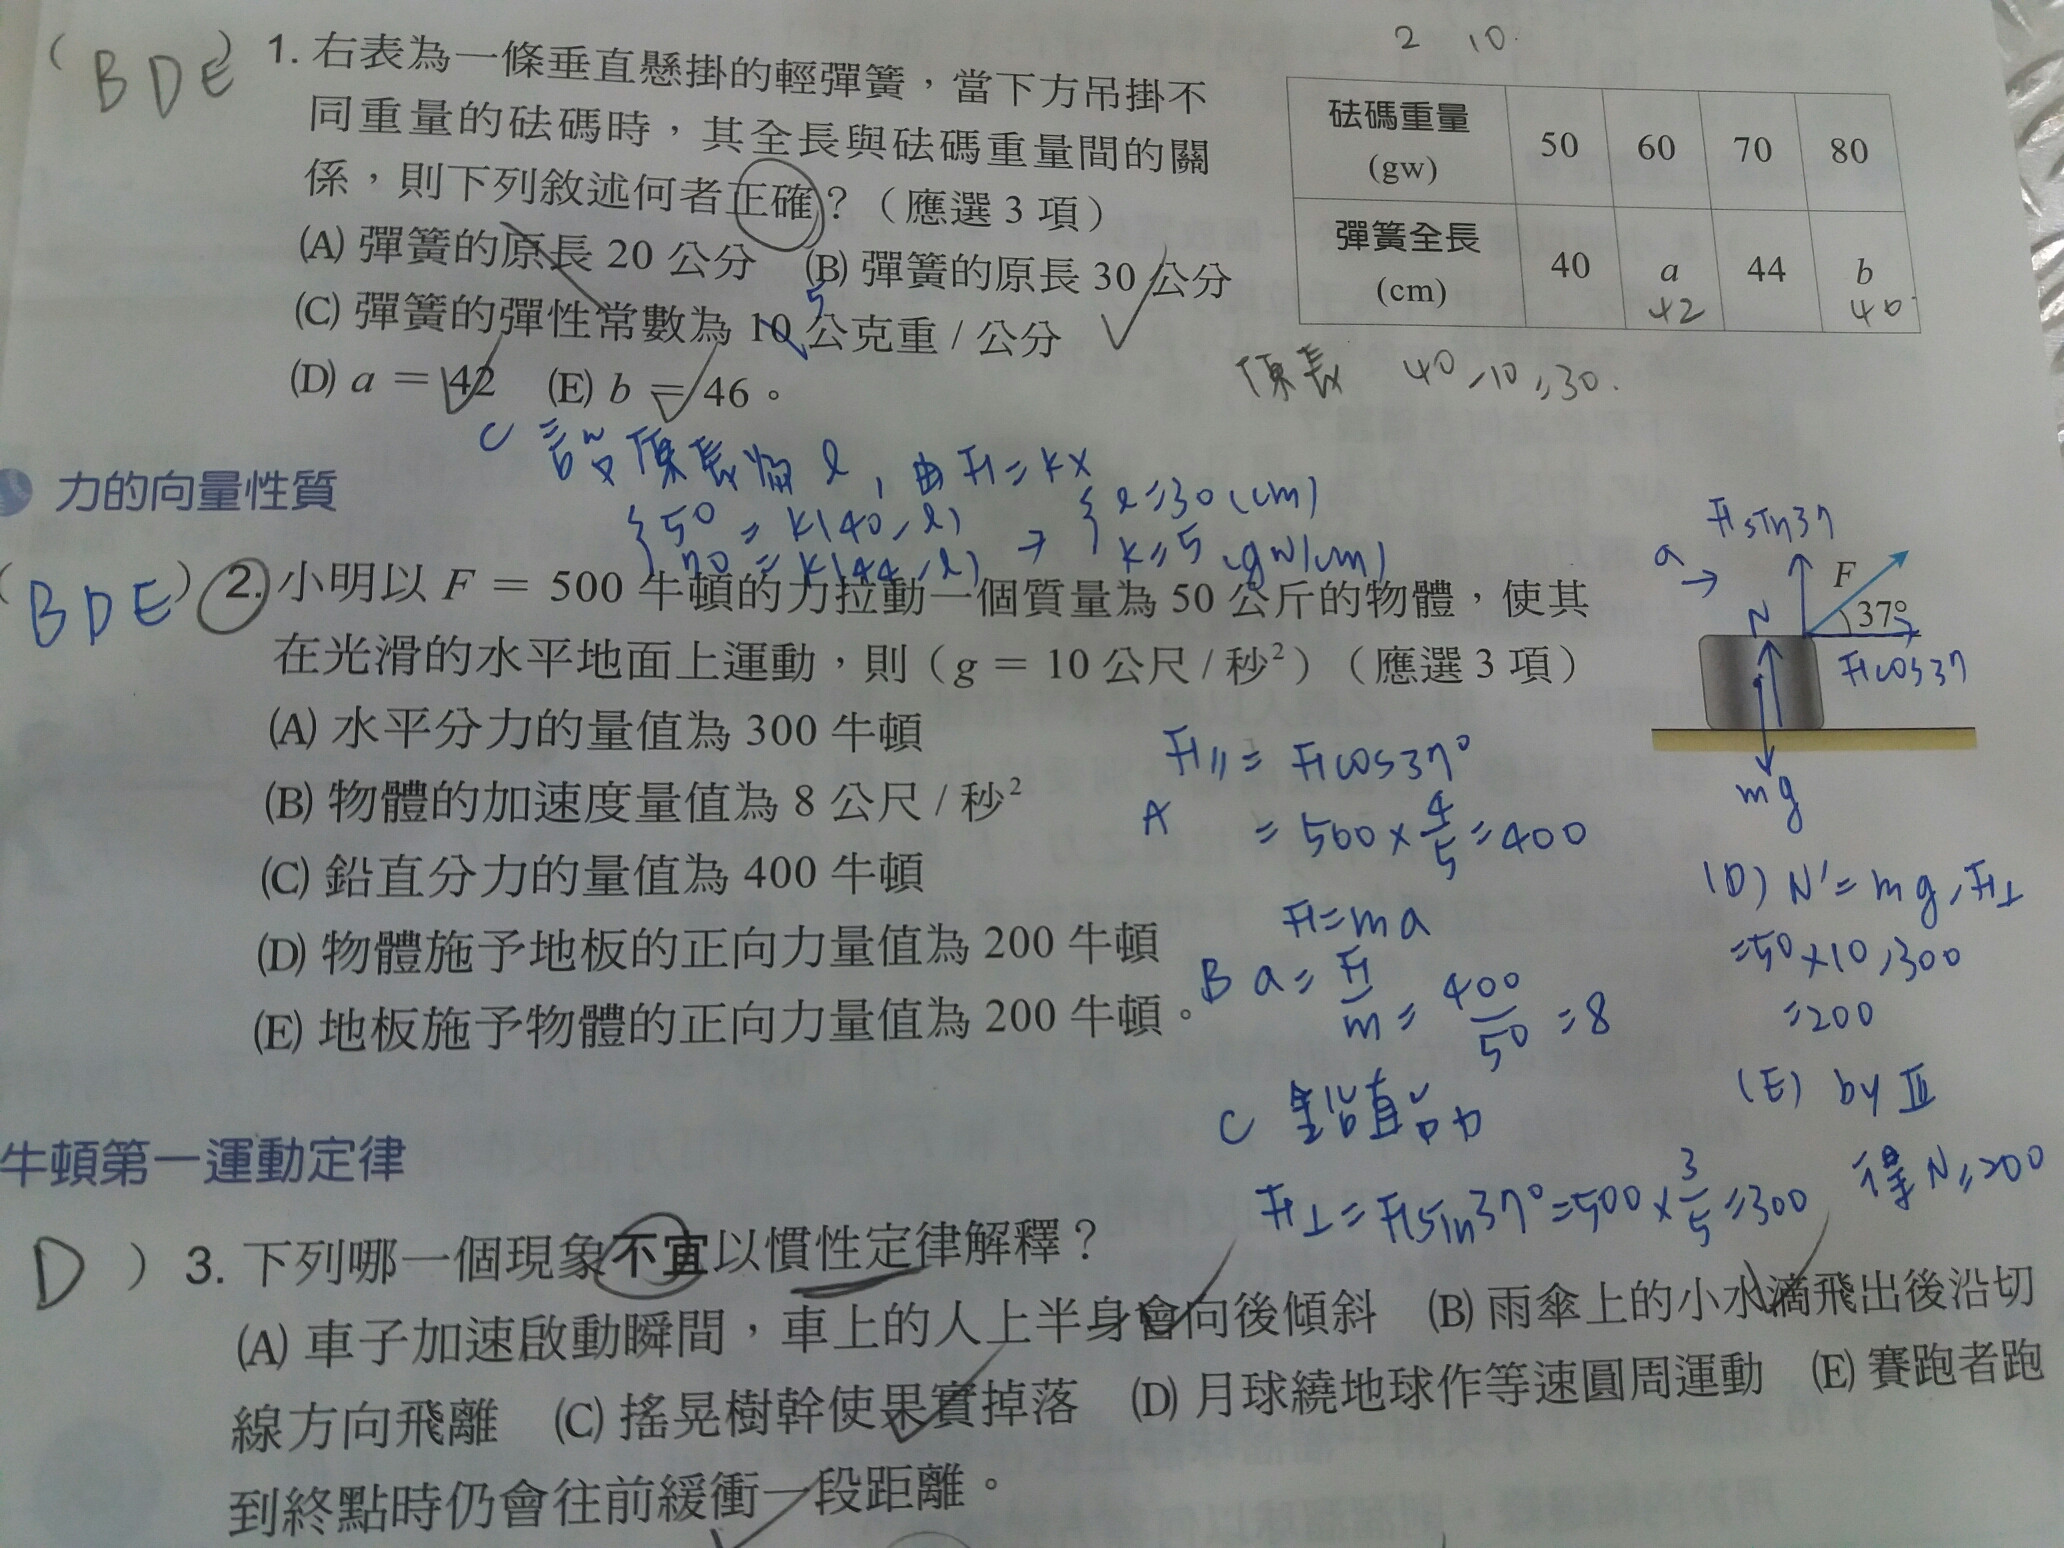 2 10.
(BDE) 1. 右表為一條垂直懸掛的輕彈簧，當下方吊掛不
同重量的砝碼時，其全長與砝碼重量間的關
係，則下列敘述何者正確？（應選 3 項）
(A) 彈簧的原長 20 公分 (B) 彈簧的原長 30 公分
5
(C) 彈簧的彈性常數為 10 公克重 / 公分
(D) a = 42 (E) b = 46。
砝碼重量 (gw) 50 60 70 80
彈簧全長 (cm) 40 a 44 b
42
原長 40-10=30.
C 設原長為 l，由 F=kx
50 = k(40-l)
70 = k(44-l) → l=30(cm)
k=5(gw/cm)
力的向量性質
(BDE) 2. 小明以 F = 500 牛頓的力拉動一個質量為 50 公斤的物體，使其
在光滑的水平地面上運動，則（g = 10 公尺 / 秒²）（應選 3 項）
(A) 水平分力的量值為 300 牛頓
(B) 物體的加速度量值為 8 公尺 / 秒²
(C) 鉛直分力的量值為 400 牛頓
(D) 物體施予地板的正向力量值為 200 牛頓
(E) 地板施予物體的正向力量值為 200 牛頓。
Fsin37
a →
F
37°
N
Fcos37
mg
F∥=Fcos37°
A =500×4/5=400
F=ma
B a=F/m=400/50=8
C 鉛直分力
F⊥=Fsin37°=500×3/5=300
(D) N'=mg-F⊥
=50×10-300
=200
(E) by Ⅲ
得 N=200
牛頓第一運動定律
D ) 3. 下列哪一個現象不宜以慣性定律解釋？
(A) 車子加速啟動瞬間，車上的人上半身會向後傾斜 (B) 雨傘上的小水滴飛出後沿切
線方向飛離 (C) 搖晃樹幹使果實掉落 (D) 月球繞地球作等速圓周運動 (E) 賽跑者跑
到終點時仍會往前緩衝一段距離。